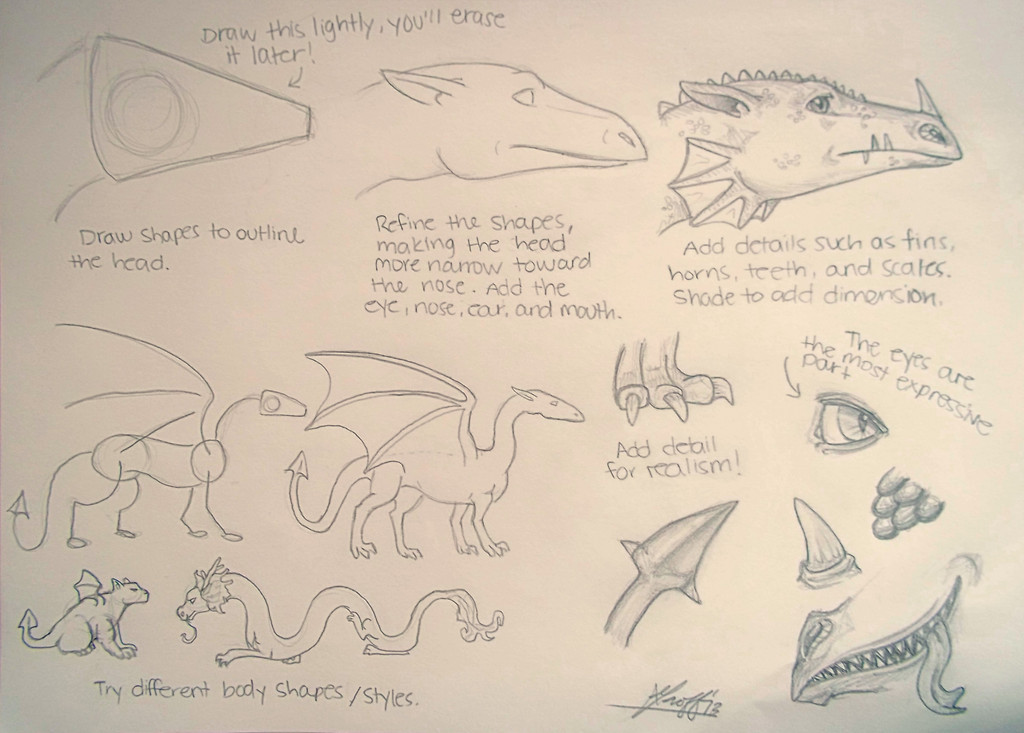 Draw this lightly, you'll erase
it later!
Draw shapes to outline
the head.
Refine the shapes,
making the head
more narrow toward
the nose. Add the
eye, nose, ear, and mouth.
Add details such as fins,
horns, teeth, and scales.
Shade to add dimension.
Add detail
for realism!
The eyes are
the most expressive
part
Try different body shapes/styles.